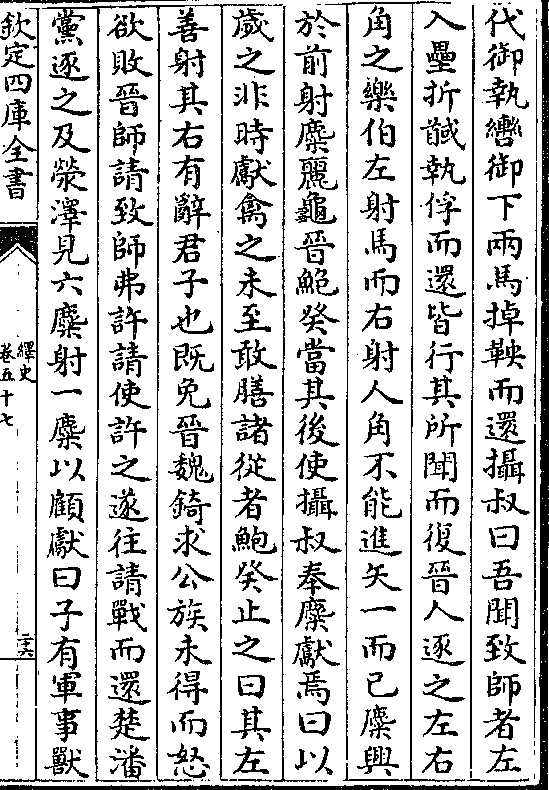 代御執轡御下兩馬掉鞅而還攝叔曰吾聞致師者左
入壘折馘執俘而還皆行其所聞而復晉人逐之左右
角之樂伯左射馬而右射人角不能進矢一而已麋興
於前射麋麗龜晉鮑癸當其後使攝叔奉麋獻焉曰以
歲之非時獻禽之未至敢膳諸從者鮑癸止之曰其左
善射其右有辭君子也既免晉魏錡求公族未得而怒
欲敗晉師請致師弗許請使許之遂往請戰而還楚潘
黨逐之及滎澤見六麋射一麋以顧獻曰子有軍事獸
欽定四庫全書
繹史
卷五十七
二十六